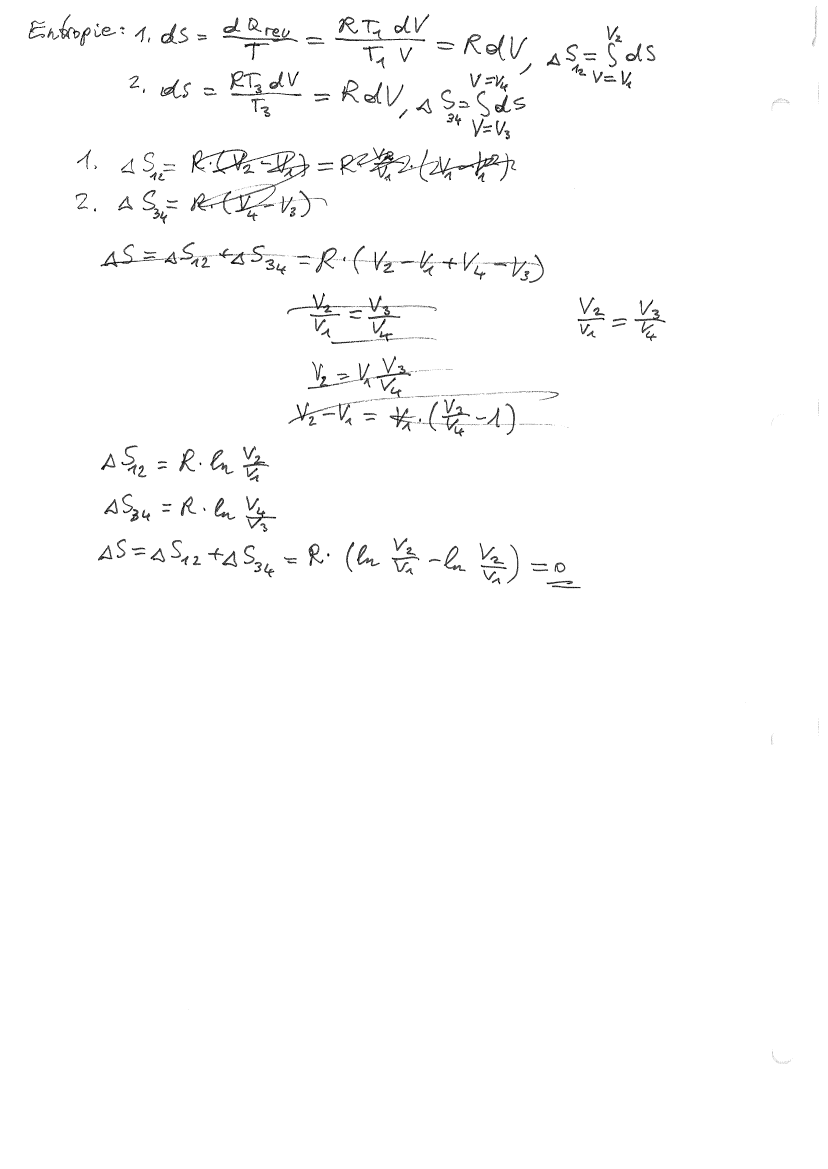 Entropie: 1. dS = dQrev/T = RT₁ dV/T₁ V = R dV, ΔS₁₂ = ∫_{V=V₁}^{V₂} dS
2. dS = RT₃ dV/T₃ = R dV, ΔS₃₄ = ∫_{V=V₃}^{V=V₄} dS
1. ΔS₁₂ = R·(V₂ − V₁) = R
2. ΔS₃₄ = R·(V₄ − V₃)
ΔS = ΔS₁₂ + ΔS₃₄ = R·(V₂ − V₁ + V₄ − V₃)
V₂/V₁ = V₃/V₄ V₂/V₁ = V₃/V₄
V₂ = V₁ V₃/V₄
V₂ − V₁ = V₁·(V₃/V₄ − 1)
ΔS₁₂ = R·ln V₂/V₁
ΔS₃₄ = R·ln V₄/V₃
ΔS = ΔS₁₂ + ΔS₃₄ = R·(ln V₂/V₁ − ln V₂/V₁) = 0